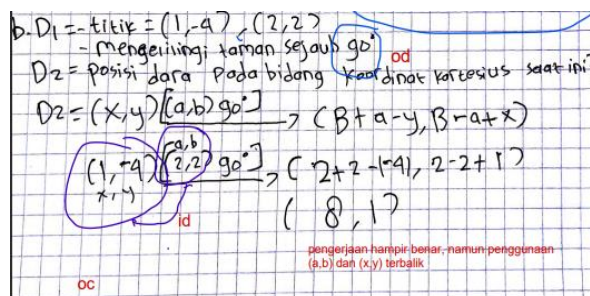 b. D1 = - titik = (1,-4) , (2,2)
- mengelilingi taman sejauh 90°
od
D2 = posisi dara pada bidang koordinat kartesius saat ini
D2 = (x,y) [(a,b) 90°] → (B+a-y, B-a+x)
a,b
(1,-4) [(2,2) 90°] → (2+2-(-4), 2-2+1)
x, y
id
(8,1)
pengerjaan hampir benar, namun penggunaan
(a,b) dan (x,y) terbalik
oc